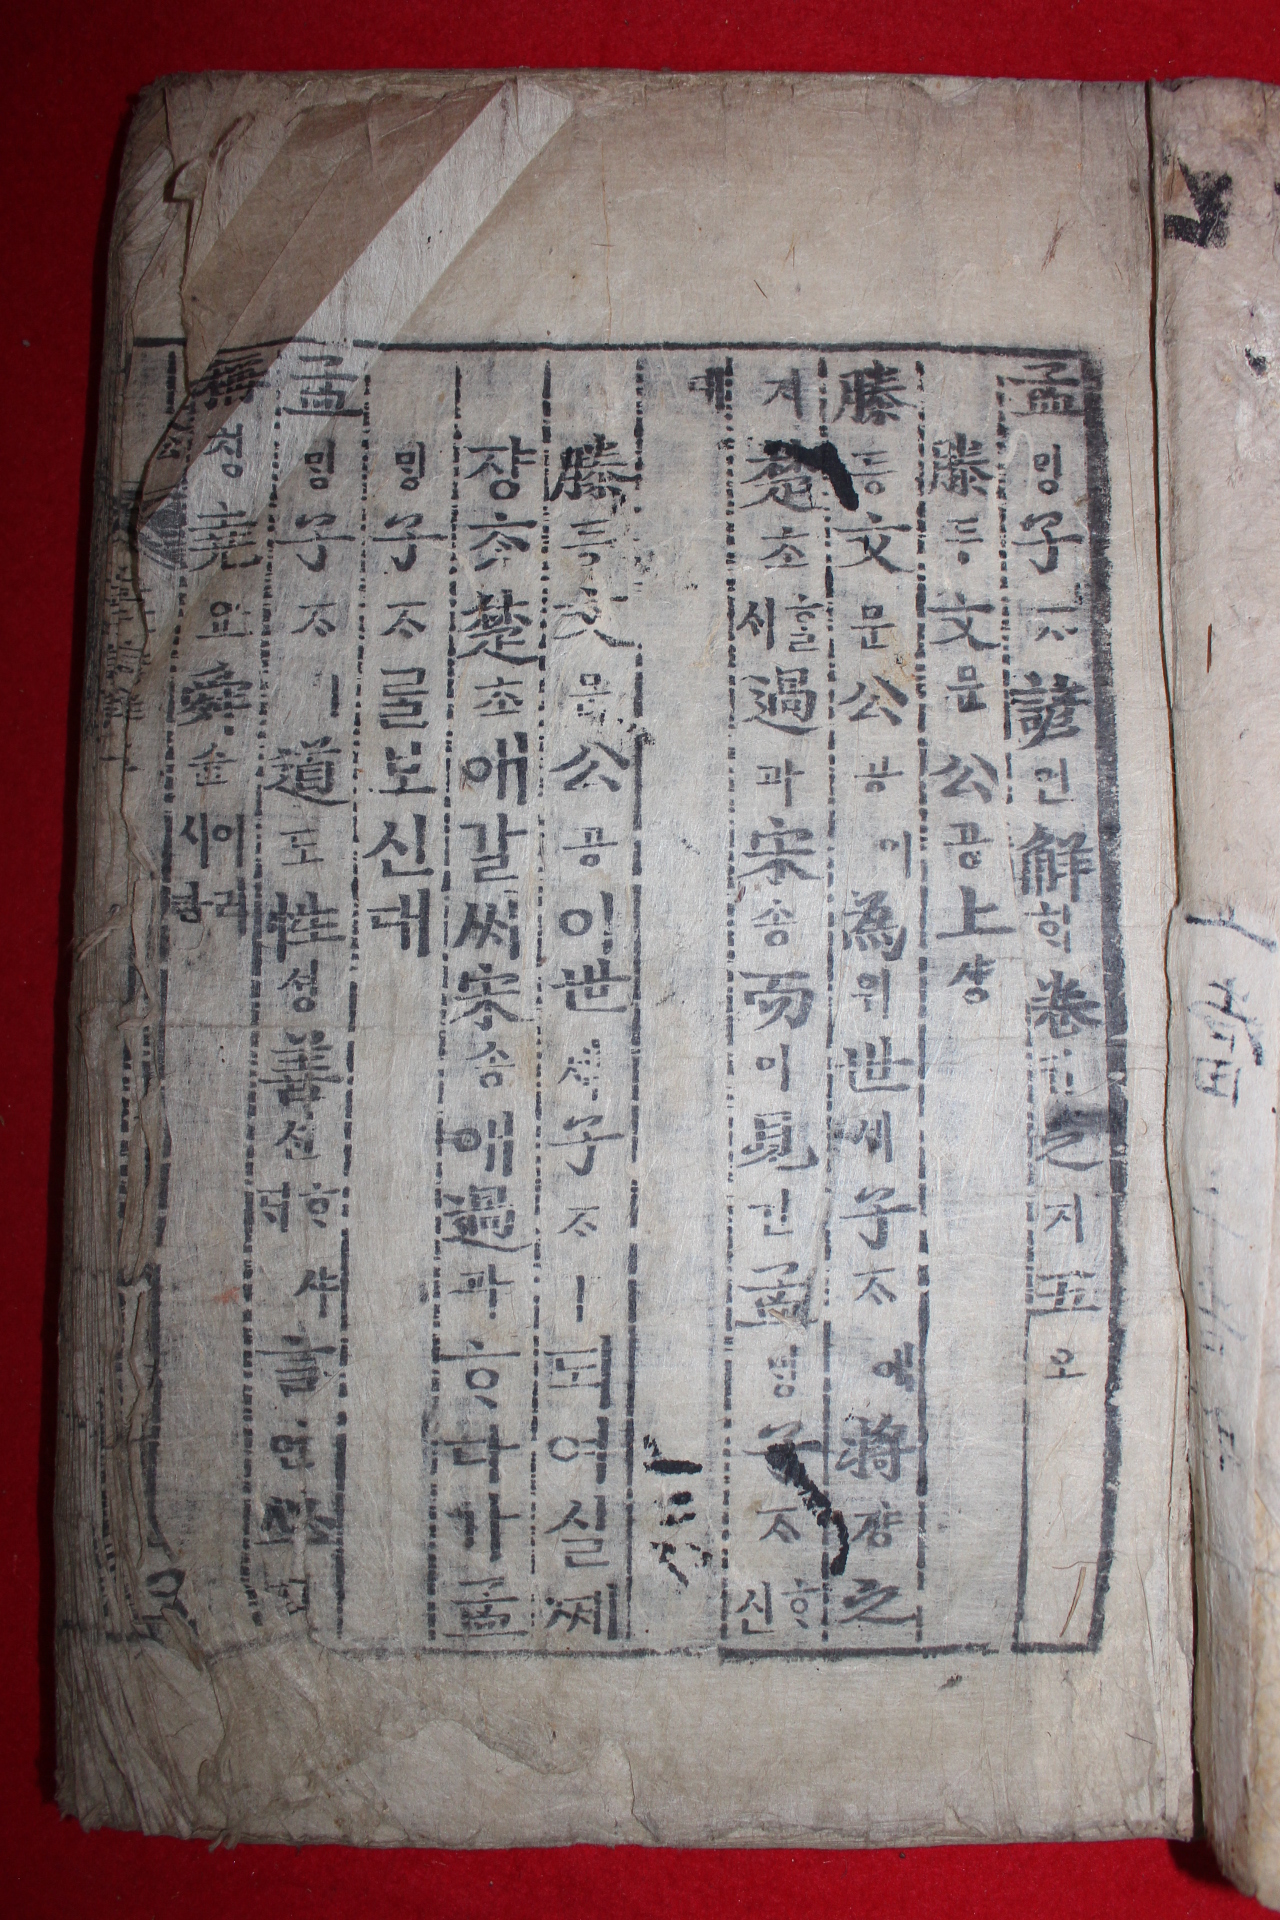 孟밍子ᄌᆞ諺언解ᄒᆡ卷권之지五오
滕등文문公공上샹
滕등文문公공이為위世셰子ᄌᆞ에將쟝之
지楚초ᄒᆞᆯᄉᆡ過과宋송而이見견孟ᄆᆡᆼ子ᄌᆞᄒᆞ신
대
滕등文문公공이世셰子ᄌᆞㅣ되여실ᄶᅦ
쟝ᄎᆞᆺ楚초애갈ᄊᆡ宋송애過과ᄒᆞᆼᄒᆞ다가孟
밍子ᄌᆞ를보신대
孟밍子ᄌᆞㅣ道도性셩善션ᄒᆞ샤ᄃᆡ言언必필
稱칭堯요舜슌이러시당